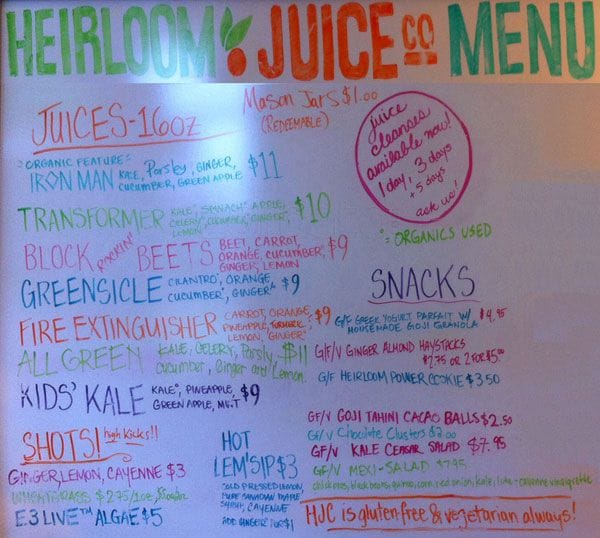 HEIRLOOM JUICE CO MENU
JUICES-16oz
Mason Jars $1.00
(REDEEMABLE)
juice
cleanses
available now!
1 day, 3 days
+ 5 days
ask us!
"ORGANIC FEATURE"
IRON MAN KALE, Parsley, GINGER, $11
CUCUMBER, GREEN APPLE
TRANSFORMER KALE*, SPINACH*, APPLE, $10
CELERY*, CUCUMBER*, GINGER*,
LEMON
* = ORGANICS USED
BLOCK ROCKIN' BEETS BEET, CARROT, $9
ORANGE, CUCUMBER*,
GINGER, LEMON
GREENSICLE CILANTRO*, ORANGE, $9
CUCUMBER*, GINGER*
FIRE EXTINGUISHER CARROT, ORANGE, $9
PINEAPPLE, TURMERIC,
LEMON, GINGER*
ALL GREEN KALE, CELERY, Parsly, $11
cucumber, Ginger and Lemon
KIDS' KALE KALE*, PINEAPPLE, $9
GREEN APPLE, MINT
SNACKS
G/F GREEK YOGURT PARFAIT W/ $4.95
HOUSEMADE GOJI GRANOLA
G/F/V GINGER ALMOND HAYSTACKS
$2.75 OR 2 FOR $5.00
G/F HEIRLOOM POWER COOKIE $3.50
GF/V GOJI TAHINI CACAO BALLS $2.50
GF/V Chocolate Clusters $2.00
GF/V KALE CEASAR SALAD $7.95
GF/V MEXI-SALAD $7.95
chick peas, black beans, quinoa, corn, red onion, kale, lime-cayenne vinaigrette
SHOTS! high kicks!!
GINGER, LEMON, CAYENNE $3
WHEATGRASS $2.75/1oz,
E3 LIVE™ ALGAE $5
HOT
LEM'SIP $3
COLD PRESSED LEMON,
PURE CANADIAN MAPLE
SYRUP, CAYENNE
ADD GINGER FOR $1
HJC is gluten-free & vegetarian always!